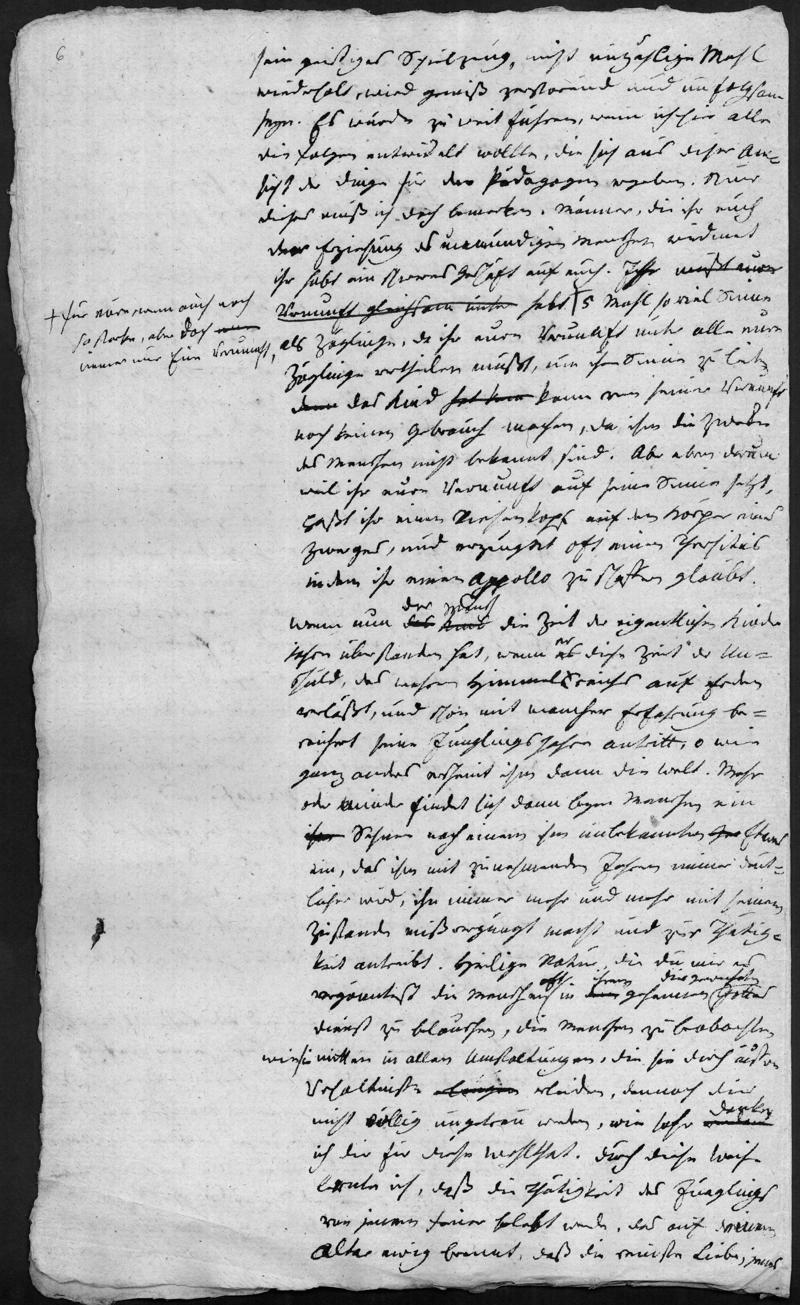 6
sein geistiges Spielzeug, nicht unzählige Mahl
wiederholt, wird gewiß zerstörend und unfolgsam
seyn. Es würde zu weit führen, wenn ich hier alle
die Folgen entwickeln wollte, die sich aus dieser An=
sicht der Dinge für den Pädagogen ergeben. Nur
dieses muß ich doch bemerken. Männer, die ihr euch
der Erziehung des unmündigen Menschen widmet
ihr habt ein schweres Geschäft auf euch. Ihr müßt eure
Vernunft gleichsam unter habt 5 Mahl so viel Sinne
+ für wenn auch noch
so starke, aber doch
immer nur Eine Vernunft,
als Zöglinge, da ihr eure Vernunft unter alle eure
Zöglinge vertheilen müßt, um ihre Sinne zu leiten
denn das Kind hat kann von seiner Vernunft
noch keinen Gebrauch machen, da ihm die Zwecke
des Menschen nicht bekannt sind. Aber eben darum
weil ihr eure Vernunft auf seine Sinne setzt,
paßt ihr einen Riesenkopf auf den Körper eines
Zwerges, und erzeuget oft einen Thersites
indem ihr einen Appollo zu schaffen glaubt.
Wenn nun das der Mensch die Zeit der eigentlichen Kinder
jahre überstanden hat, wenn er diese Zeit der Un=
schuld, des wahren Himmelreichs auf Erden
verläßt, und schon mit mancher Erfahrung be=
reichert seine Jünglingsjahre antritt, o wie
ganz anders erscheint ihm dann die Welt. Mehr
oder minder findet sich dann beym Menschen ein
Sehnen nach einem ihm unbekannten Etwas
ein, das ihm mit zunehmenden Jahren immer deut=
licher wird, ihn immer mehr und mehr mit seinem
Zustande mißvergnügt macht und zur Thätig=
keit antreibt. Heilige Natur, die du mir es
vergönntest die Menschheit oft in ihrem geheimen Gottes
dienst zu belauschen, die Menschen zu beobachten
wie sie mitten in allen Umstaltungen, die sie durch äußere
Verhältnisse erleiden, dennoch dir
nicht völlig ungetreu werden, wie sehr danke
ich dir für diese Wohlthat. Durch diese
lernte ich, daß die Thätigkeit des Jünglings
von jenem Feuer belebt werde, das auf deinem
Altar ewig brennt, daß die reinste Liebe, jenes